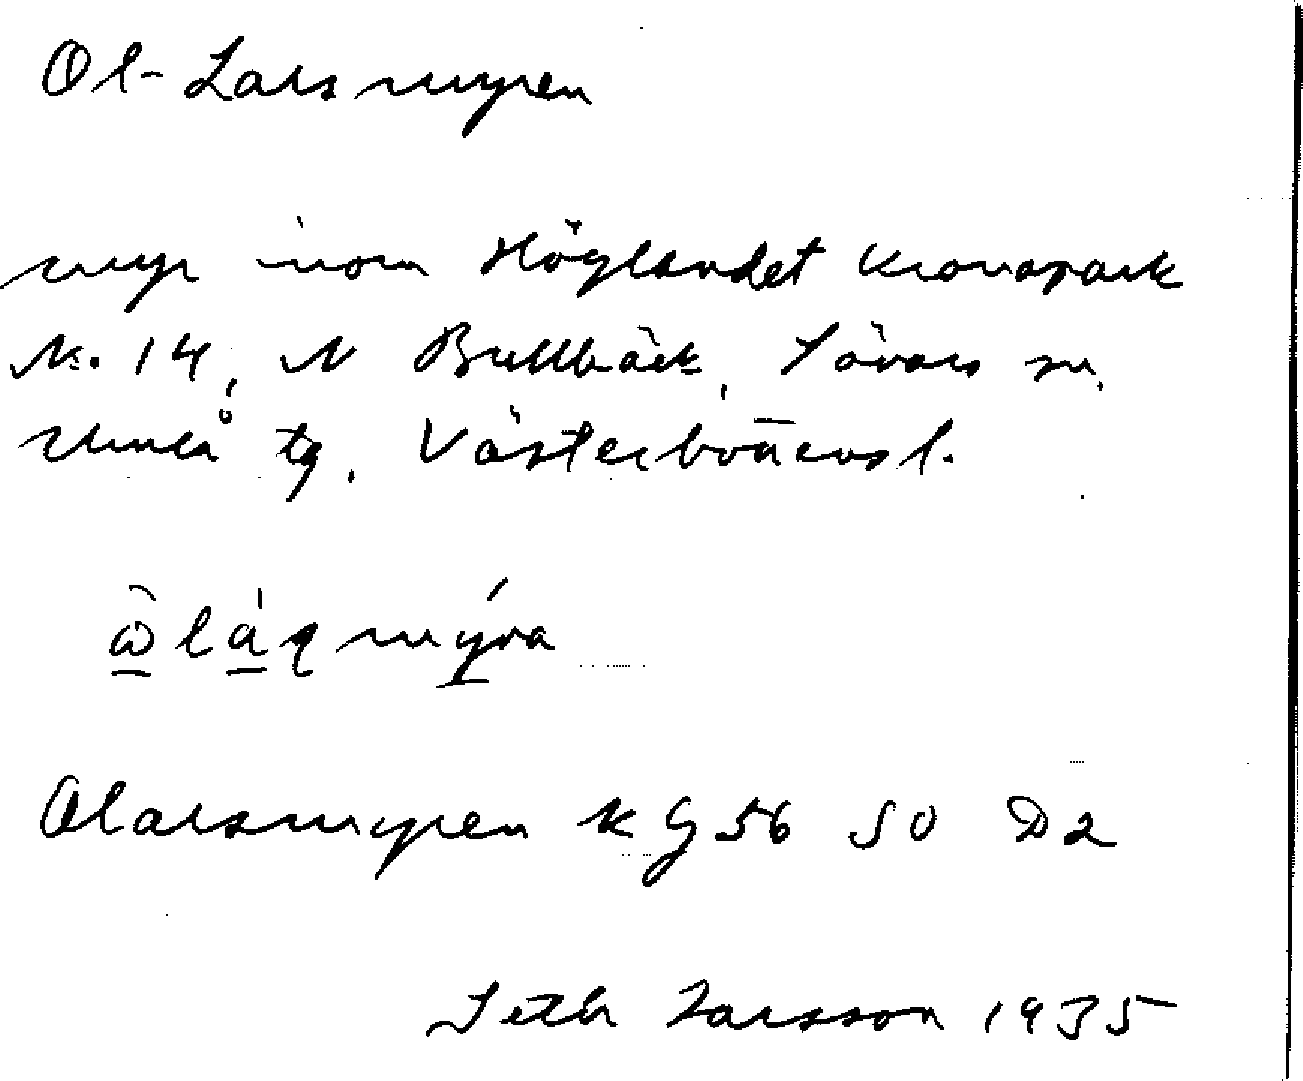 Ol-Larsmyren
myr inom Höglandet kronopark
Nr. 14, N Bullbäck, Sävars sn,
Umeå tg. Västerbottens l.
Olarsmyren k G 56 SO D2
Seth Larsson 1935